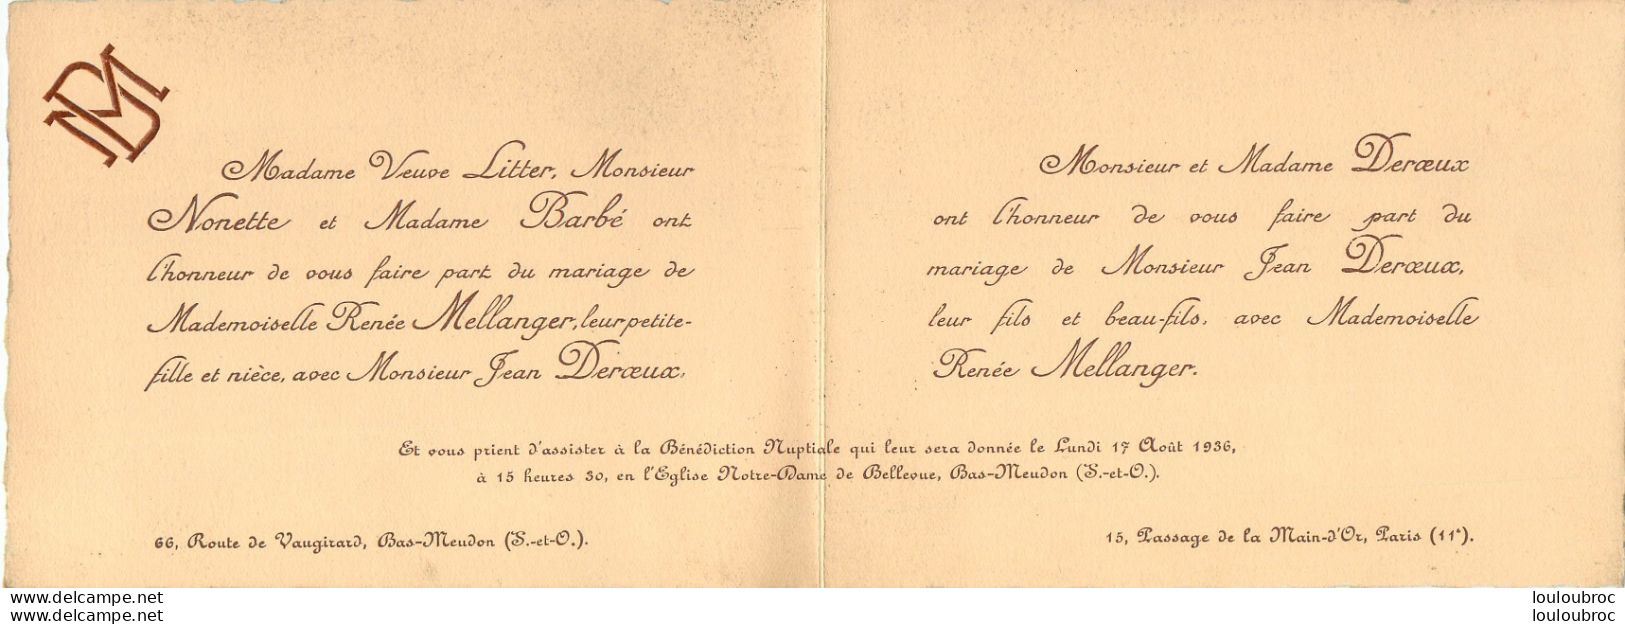 DM
Madame Veuve Litter, Monsieur
Nonette et Madame Barbé ont
l'honneur de vous faire part du mariage de
Mademoiselle Renée Mellanger, leur petite-
fille et nièce, avec Monsieur Jean Derœux.
Monsieur et Madame Derœux
ont l'honneur de vous faire part du
mariage de Monsieur Jean Derœux,
leur fils et beau-fils, avec Mademoiselle
Renée Mellanger.
Et vous prient d'assister à la Bénédiction Nuptiale qui leur sera donnée le Lundi 17 Août 1936,
à 15 heures 30, en l'Eglise Notre-Dame de Bellevue, Bas-Meudon (S.-et-O.).
66, Route de Vaugirard, Bas-Meudon (S.-et-O.).
15, Passage de la Main-d'Or, Paris (11e).
www.delcampe.net
louloubroc
www.delcampe.net
louloubroc